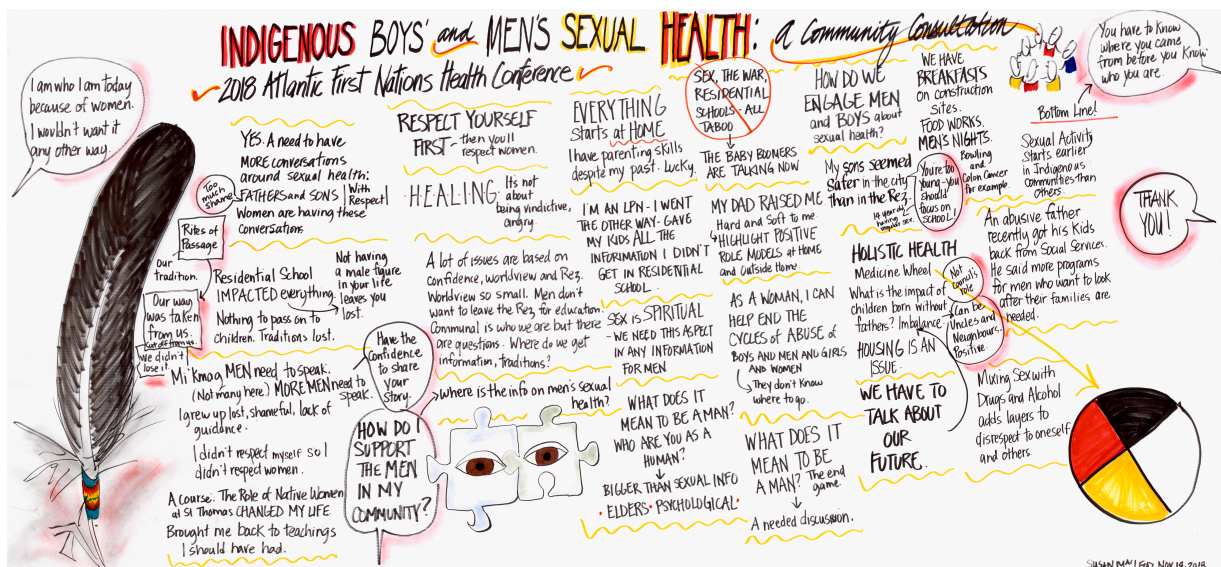 INDIGENOUS BOYS' and MEN'S SEXUAL HEALTH: a Community Consultation
2018 Atlantic First Nations Health Conference
I am who I am today
because of women.
I wouldn't want it
any other way.
YES. A need to have
MORE conversations
around sexual health:
FATHERS and SONS
With
Respect
Women are having these
conversations
Too
much
shame
Rites of
Passage
Our
tradition.
Our way
was taken
from us.
cut off from us.
We didn't
lose it
Residential School
IMPACTED everything.
Nothing to pass on to
children. Traditions lost.
Not having
a male figure
in your life
leaves you
lost.
Mi'kmaq MEN need to speak.
(Not many here) MORE MEN need to
speak.
I grew up lost, shameful, lack of
guidance.
I didn't respect myself so I
didn't respect women.
A course: The Role of Native Women
at St Thomas CHANGED MY LIFE
Brought me back to teachings
I should have had.
RESPECT YOURSELF
FIRST - then you'll
respect women.
HEALING.
It's not
about
being vindictive,
angry
A lot of issues are based on
confidence, worldview and Rez.
Worldview so small. Men don't
want to leave the Rez, for education.
Communal is who we are but there
are questions. Where do we get
information, traditions?
Have the
confidence
to share
your
story.
where is the info on men's sexual
health?
HOW DO I
SUPPORT
THE MEN
IN MY
COMMUNITY?
EVERYTHING
starts at HOME
I have parenting skills
despite my past. Lucky.
I'M AN LPN - I WENT
THE OTHER WAY - GAVE
MY KIDS ALL THE
INFORMATION I DIDN'T
GET IN RESIDENTIAL
SCHOOL.
SEX is SPIRITUAL
- WE NEED THIS ASPECT
IN ANY INFORMATION
FOR MEN
WHAT DOES IT
MEAN TO BE A MAN?
WHO ARE YOU AS A
HUMAN?
BIGGER THAN SEXUAL INFO
• ELDERS • PSYCHOLOGICAL •
SEX, THE WAR,
RESIDENTIAL
SCHOOLS - ALL
TABOO
THE BABY BOOMERS
ARE TALKING NOW
MY DAD RAISED ME
Hard and Soft to me
HIGHLIGHT POSITIVE
ROLE MODELS AT HOME
and Outside Home.
AS A WOMAN, I CAN
HELP END THE
CYCLES OF ABUSE of
BOYS AND MEN AND GIRLS
AND WOMEN
They don't know
where to go.
WHAT DOES IT
MEAN TO BE
A MAN? The end
game.
A needed discussion.
HOW DO WE
ENGAGE MEN
and BOYS about
sexual health?
My sons seemed
safer in the city
than in the Rez.
14 year olds
having
regular sex.
You're too
young - you
should
focus on
SCHOOL!
HOLISTIC HEALTH
Medicine Wheel
What is the impact of
children born without
fathers? Imbalance
Not
Council's
role
Can be
Uncles and
Neighbours.
Positive.
HOUSING IS AN
ISSUE.
WE HAVE TO
TALK ABOUT
OUR
FUTURE.
WE HAVE
BREAKFASTS
ON construction
SITES.
FOOD WORKS.
MEN'S NIGHTS.
Bowling
and
Colon Cancer
for example.
You have to know
where you came
from before you know
who you are.
Bottom Line!
Sexual Activity
Starts earlier
in Indigenous
Communities than
Others.
An abusive father
recently got his kids
back from Social Services.
He said more programs
for men who want to look
after their families are
needed.
THANK
YOU!
Mixing Sex with
Drugs and Alcohol
adds layers to
disrespect to oneself
and others.
SUSAN MacLEOD NOV 14, 2018